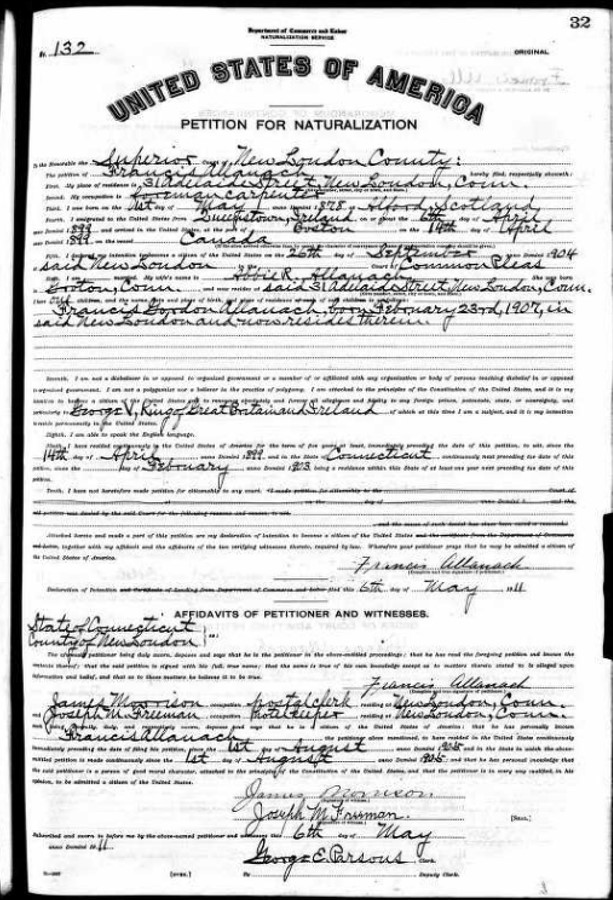 32
Department of Commerce and Labor
NATURALIZATION SERVICE
No. 132
ORIGINAL
UNITED STATES OF AMERICA
PETITION FOR NATURALIZATION
To the Honorable the Superior Court of New London County:
The petition of Francis Allanach hereby filed, respectfully showeth:
First. My place of residence is 31 Adelaide Street, New London, Conn.
Second. My occupation is Foreman Carpenter
Third. I was born on the 1st day of May anno Domini 1878 at Alford, Scotland
Fourth. I emigrated to the United States from Queenstown, Ireland on or about the 6th day of April
anno Domini 1899, and arrived in the United States, at the port of Boston on the 14th day of April
anno Domini 1899 on the vessel Canada
Fifth. I declared my intention to become a citizen of the United States on the 26th day of September anno Domini 1904
said New London Court of Common Pleas
Sixth. I am married. My wife's name is Abbie R. Allanach She was born
Groton, Conn. and now resides at said 31 Adelaide Street, New London, Conn.
I have one children, and the name, date and place of birth, and place of residence of each of said children is as follows:
Francis Gordon Allanach, born February 23rd, 1907, in
said New London and now resides therein.
Seventh. I am not a disbeliever in or opposed to organized government or a member of or affiliated with any organization or body of persons teaching disbelief in or opposed
to organized government. I am not a polygamist nor a believer in the practice of polygamy. I am attached to the principles of the Constitution of the United States, and it is my
intention to become a citizen of the United States and to renounce absolutely and forever all allegiance and fidelity to any foreign prince, potentate, state, or sovereignty, and
particularly to George V, King of Great Britain and Ireland of which at this time I am a subject, and it is my intention
to reside permanently in the United States.
Eighth. I am able to speak the English language.
Ninth. I have resided continuously in the United States of America for the term of five years at least, immediately preceding the date of this petition, to wit, since the
14th day of April anno Domini 1899, and in the State of Connecticut continuously next preceding the date of this
petition, since the day of February anno Domini 1903, being a residence within this State of at least one year next preceding the date of this
petition.
Tenth. I have not heretofore made petition for citizenship to any court. (I made petition for citizenship to the Court of
at on the day of anno Domini 1 and the
said petition was denied by the said Court for the following reasons and causes, to wit,
and the cause of such denial has since been cured or removed.)
Attached hereto and made a part of this petition are my declaration of intention to become a citizen of the United States and the certificate from the Department of Commerce
and Labor, together with my affidavit and the affidavits of the two verifying witnesses thereto, required by law. Wherefore your petitioner prays that he may be admitted a citizen of
the United States of America.
Francis Allanach
(Complete and true signature of petitioner.)
Declaration of Intention and Certificate of Landing from Department of Commerce and Labor filed this 6th day of May, 1911
AFFIDAVITS OF PETITIONER AND WITNESSES.
State of Connecticut
County of New London ss:
The aforesaid petitioner being duly sworn, deposes and says that he is the petitioner in the above-entitled proceedings; that he has read the foregoing petition and knows the
contents thereof; that the said petition is signed with his full, true name; that the same is true of his own knowledge except as to matters therein stated to be alleged upon
information and belief, and that as to those matters he believes it to be true.
Francis Allanach
(Complete and true signature of petitioner.)
James Morrison, occupation postal clerk, residing at New London, Conn.
and Joseph M. Freeman, occupation Hotel Keeper, residing at New London, Conn.
each being severally, duly, and respectively sworn, deposes and says that he is a citizen of the United States of America; that he has personally known
Francis Allanach, the petitioner above mentioned, to have resided in the United States continuously
immediately preceding the date of filing his petition, since the 1st day of August anno Domini 1905, and in the State in which the above-
entitled petition is made continuously since the 1st day of August, anno Domini 1905; and that he has personal knowledge that
the said petitioner is a person of good moral character, attached to the principles of the Constitution of the United States, and that the petitioner is in every way qualified, in his
opinion, to be admitted a citizen of the United States.
James Morrison.
(Signature of witness.)
Joseph M Freeman.
(Signature of witness.)
[SEAL.]
Subscribed and sworn to before me by the above-named petitioner and witnesses this 6th day of May
anno Domini 1911
George E. Parsons, Clerk.
[OVER.]
By Deputy Clerk.